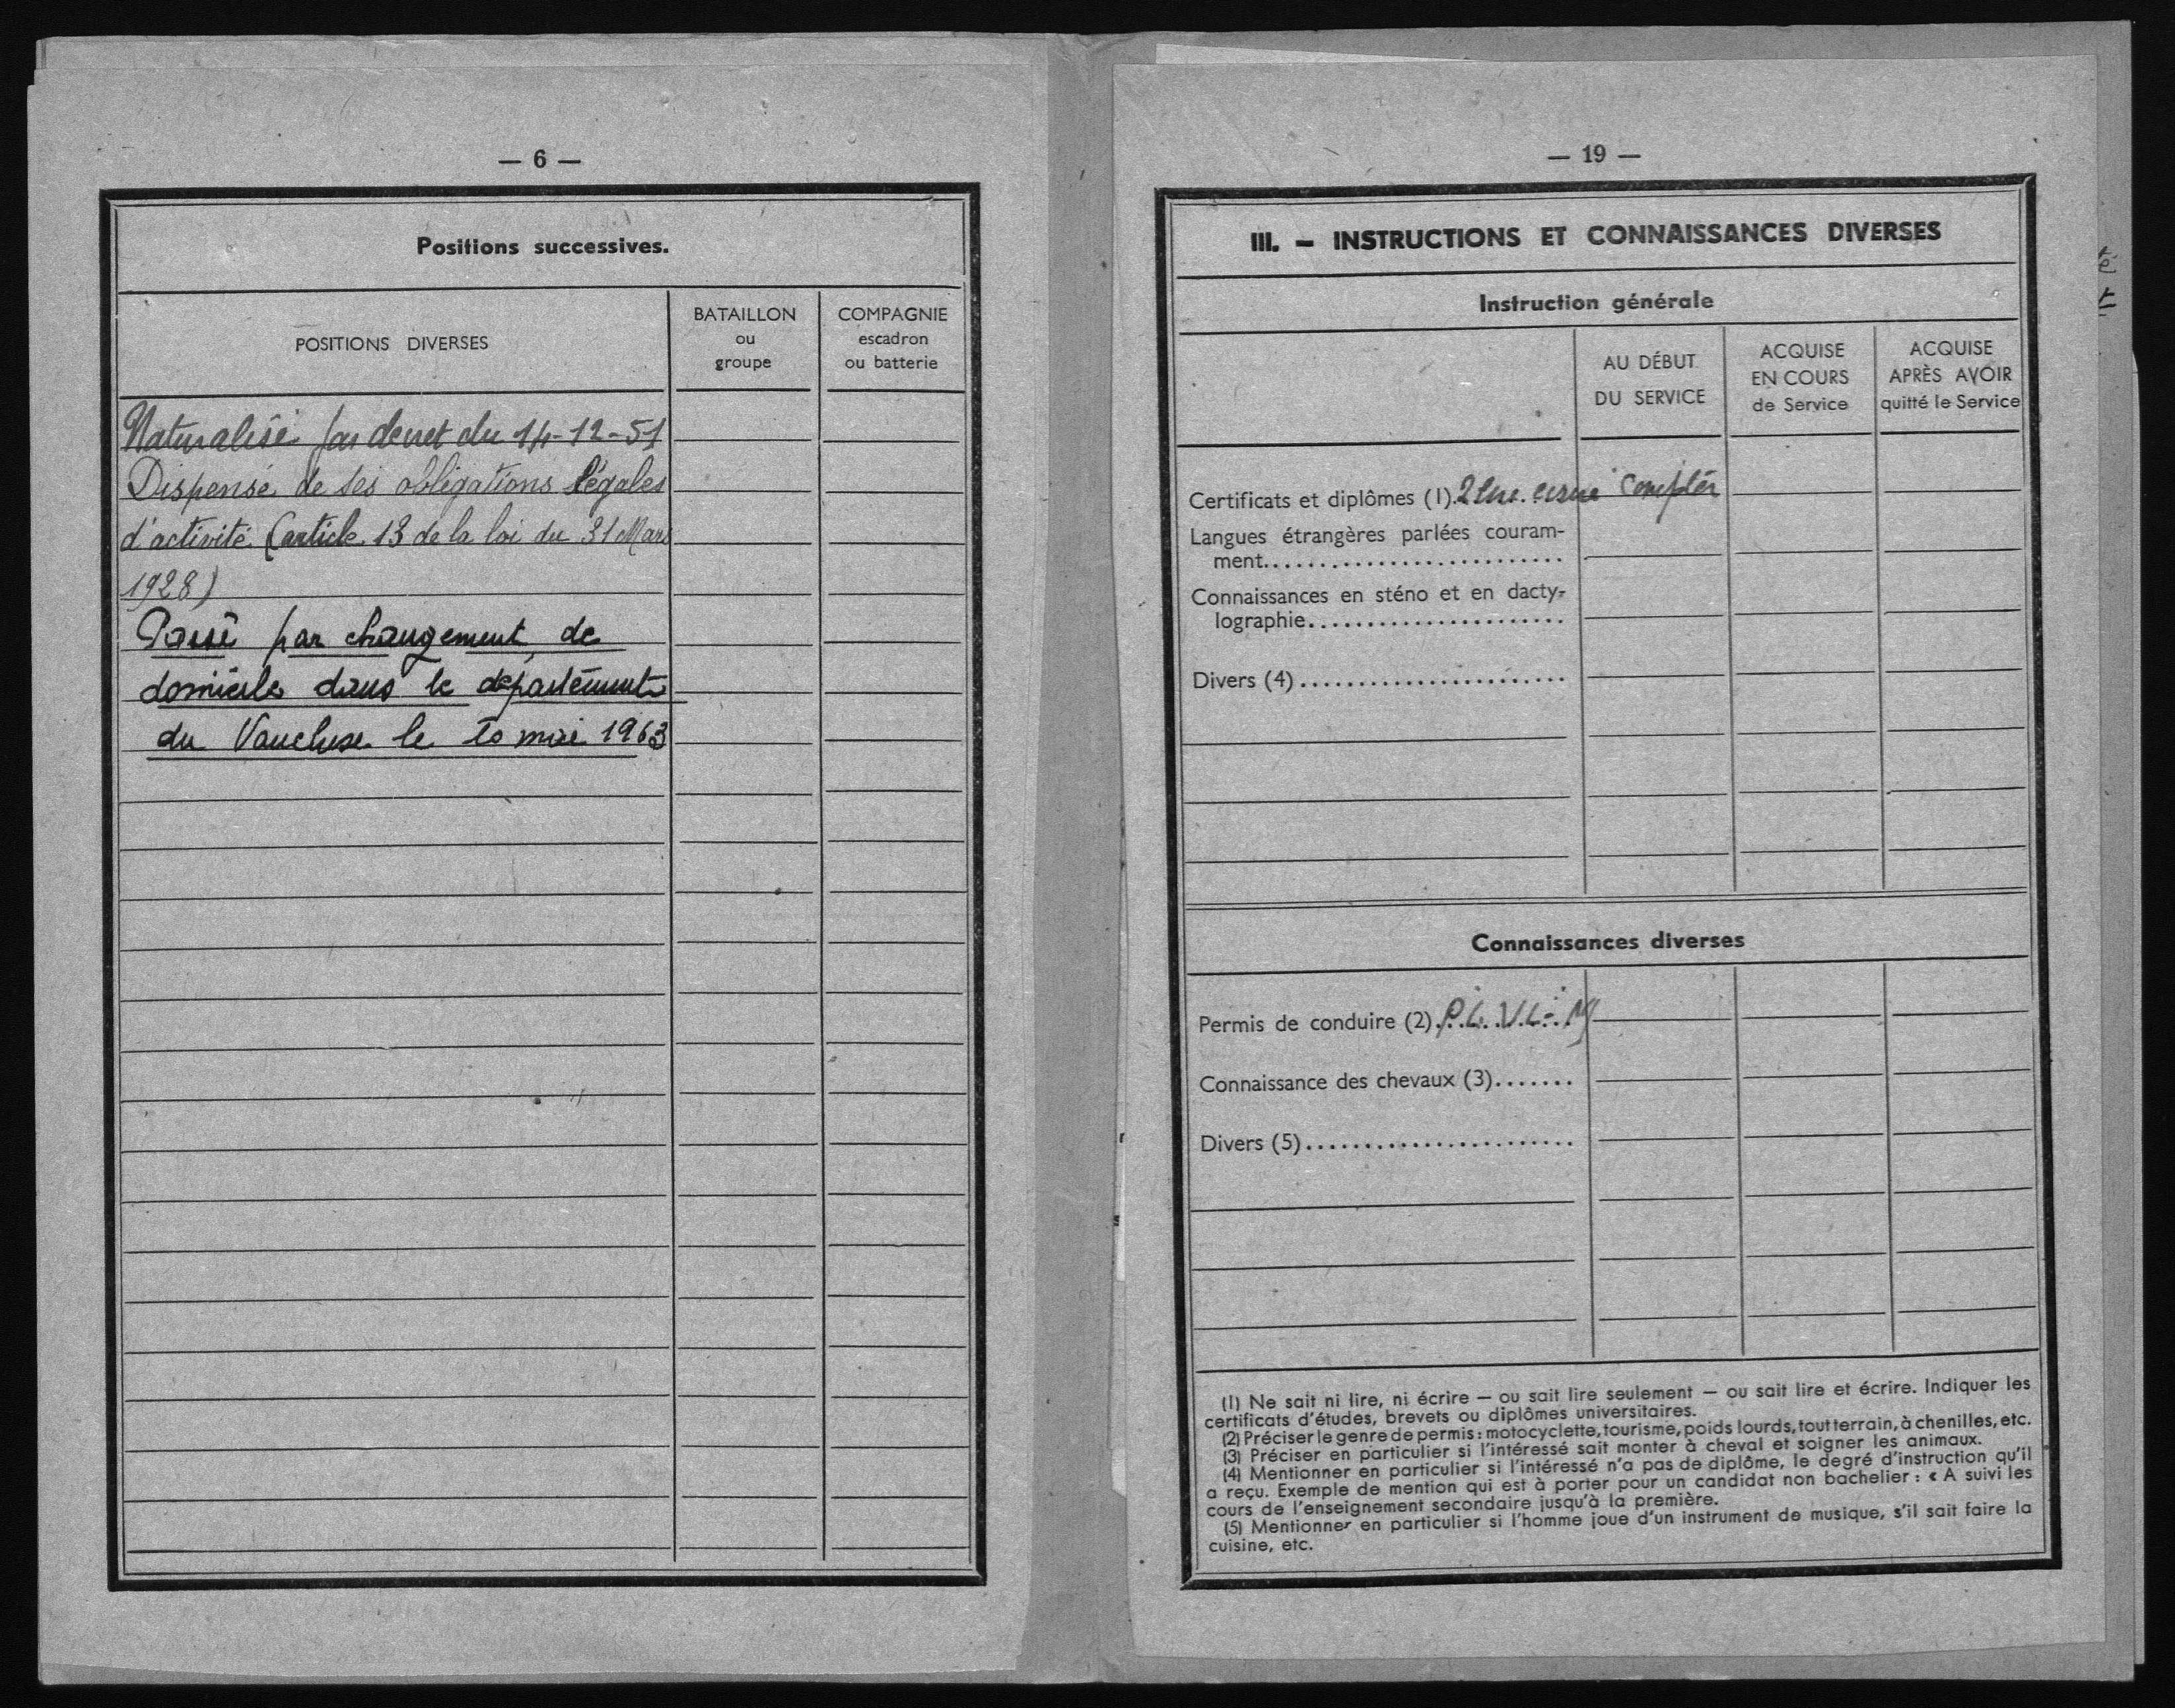 — 6 —
Positions successives.
POSITIONS DIVERSES
BATAILLON
ou
groupe
COMPAGNIE
escadron
ou batterie
Naturalisé par decret du 14-12-51
Dispensé de ses obligations légales
d'activité (article 13 de la loi du 31 Mars
1928)
Passé par changement de
domicile dans le département
du Vaucluse le 10 mai 1963
— 19 —
III. — INSTRUCTIONS ET CONNAISSANCES DIVERSES
Instruction générale
AU DÉBUT
DU SERVICE
ACQUISE
EN COURS
de Service
ACQUISE
APRÈS AVOIR
quitté le Service
Certificats et diplômes (1).
Langues étrangères parlées couram-
ment..........................
Connaissances en sténo et en dacty-
lographie......................
Divers (4).......................
Connaissances diverses
Permis de conduire (2). P.L. V.L. - M
Connaissance des chevaux (3).......
Divers (5).......................
(1) Ne sait ni lire, ni écrire — ou sait lire seulement — ou sait lire et écrire. Indiquer les
certificats d'études, brevets ou diplômes universitaires.
(2) Préciser le genre de permis : motocyclette, tourisme, poids lourds, tout terrain, à chenilles, etc.
(3) Préciser en particulier si l'intéressé sait monter à cheval et soigner les animaux.
(4) Mentionner en particulier si l'intéressé n'a pas de diplôme, le degré d'instruction qu'il
a reçu. Exemple de mention qui est à porter pour un candidat non bachelier : « A suivi les
cours de l'enseignement secondaire jusqu'à la première.
(5) Mentionner en particulier si l'homme joue d'un instrument de musique, s'il sait faire la
cuisine, etc.